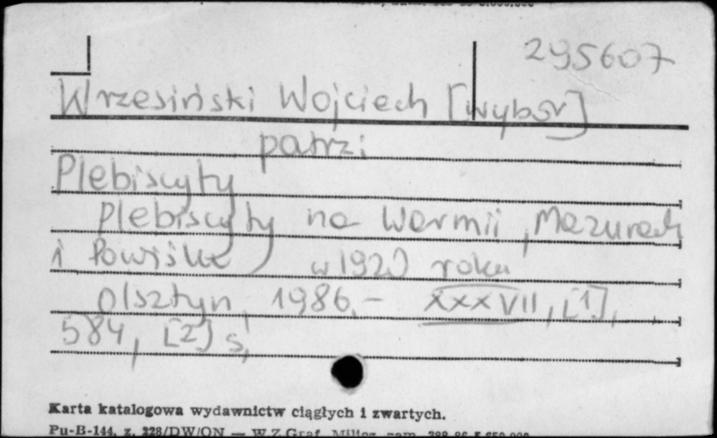 295607
Wrzesiński Wojciech [wybór]
patrz:
Plebiscyty
Plebiscyty na Warmii, Mazurach
i Powiślu w 1920 roku
Olsztyn, 1986.- XXXVII, [1],
584, [2] s.
Karta katalogowa wydawnictw ciągłych i zwartych.
Pu-B-144, z. 228/DW/ON — W.Z.Graf. Milicz, zam.